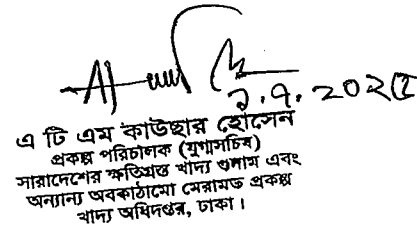 ২.৭.২০২৫
এ টি এম কাউছার হোসেন
প্রকল্প পরিচালক (যুগ্মসচিব)
সারাদেশের ক্ষতিগ্রস্ত খাদ্য গুদাম এবং
অন্যান্য অবকাঠামো মেরামত প্রকল্প
খাদ্য অধিদপ্তর, ঢাকা।